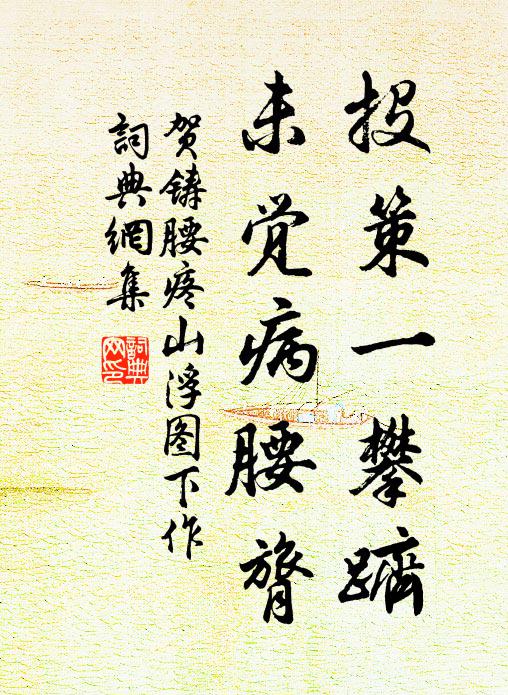 投策一攀躋
未觉病腰膂
贺铸腰疼山浮图下作
詞典網集
詞典网印